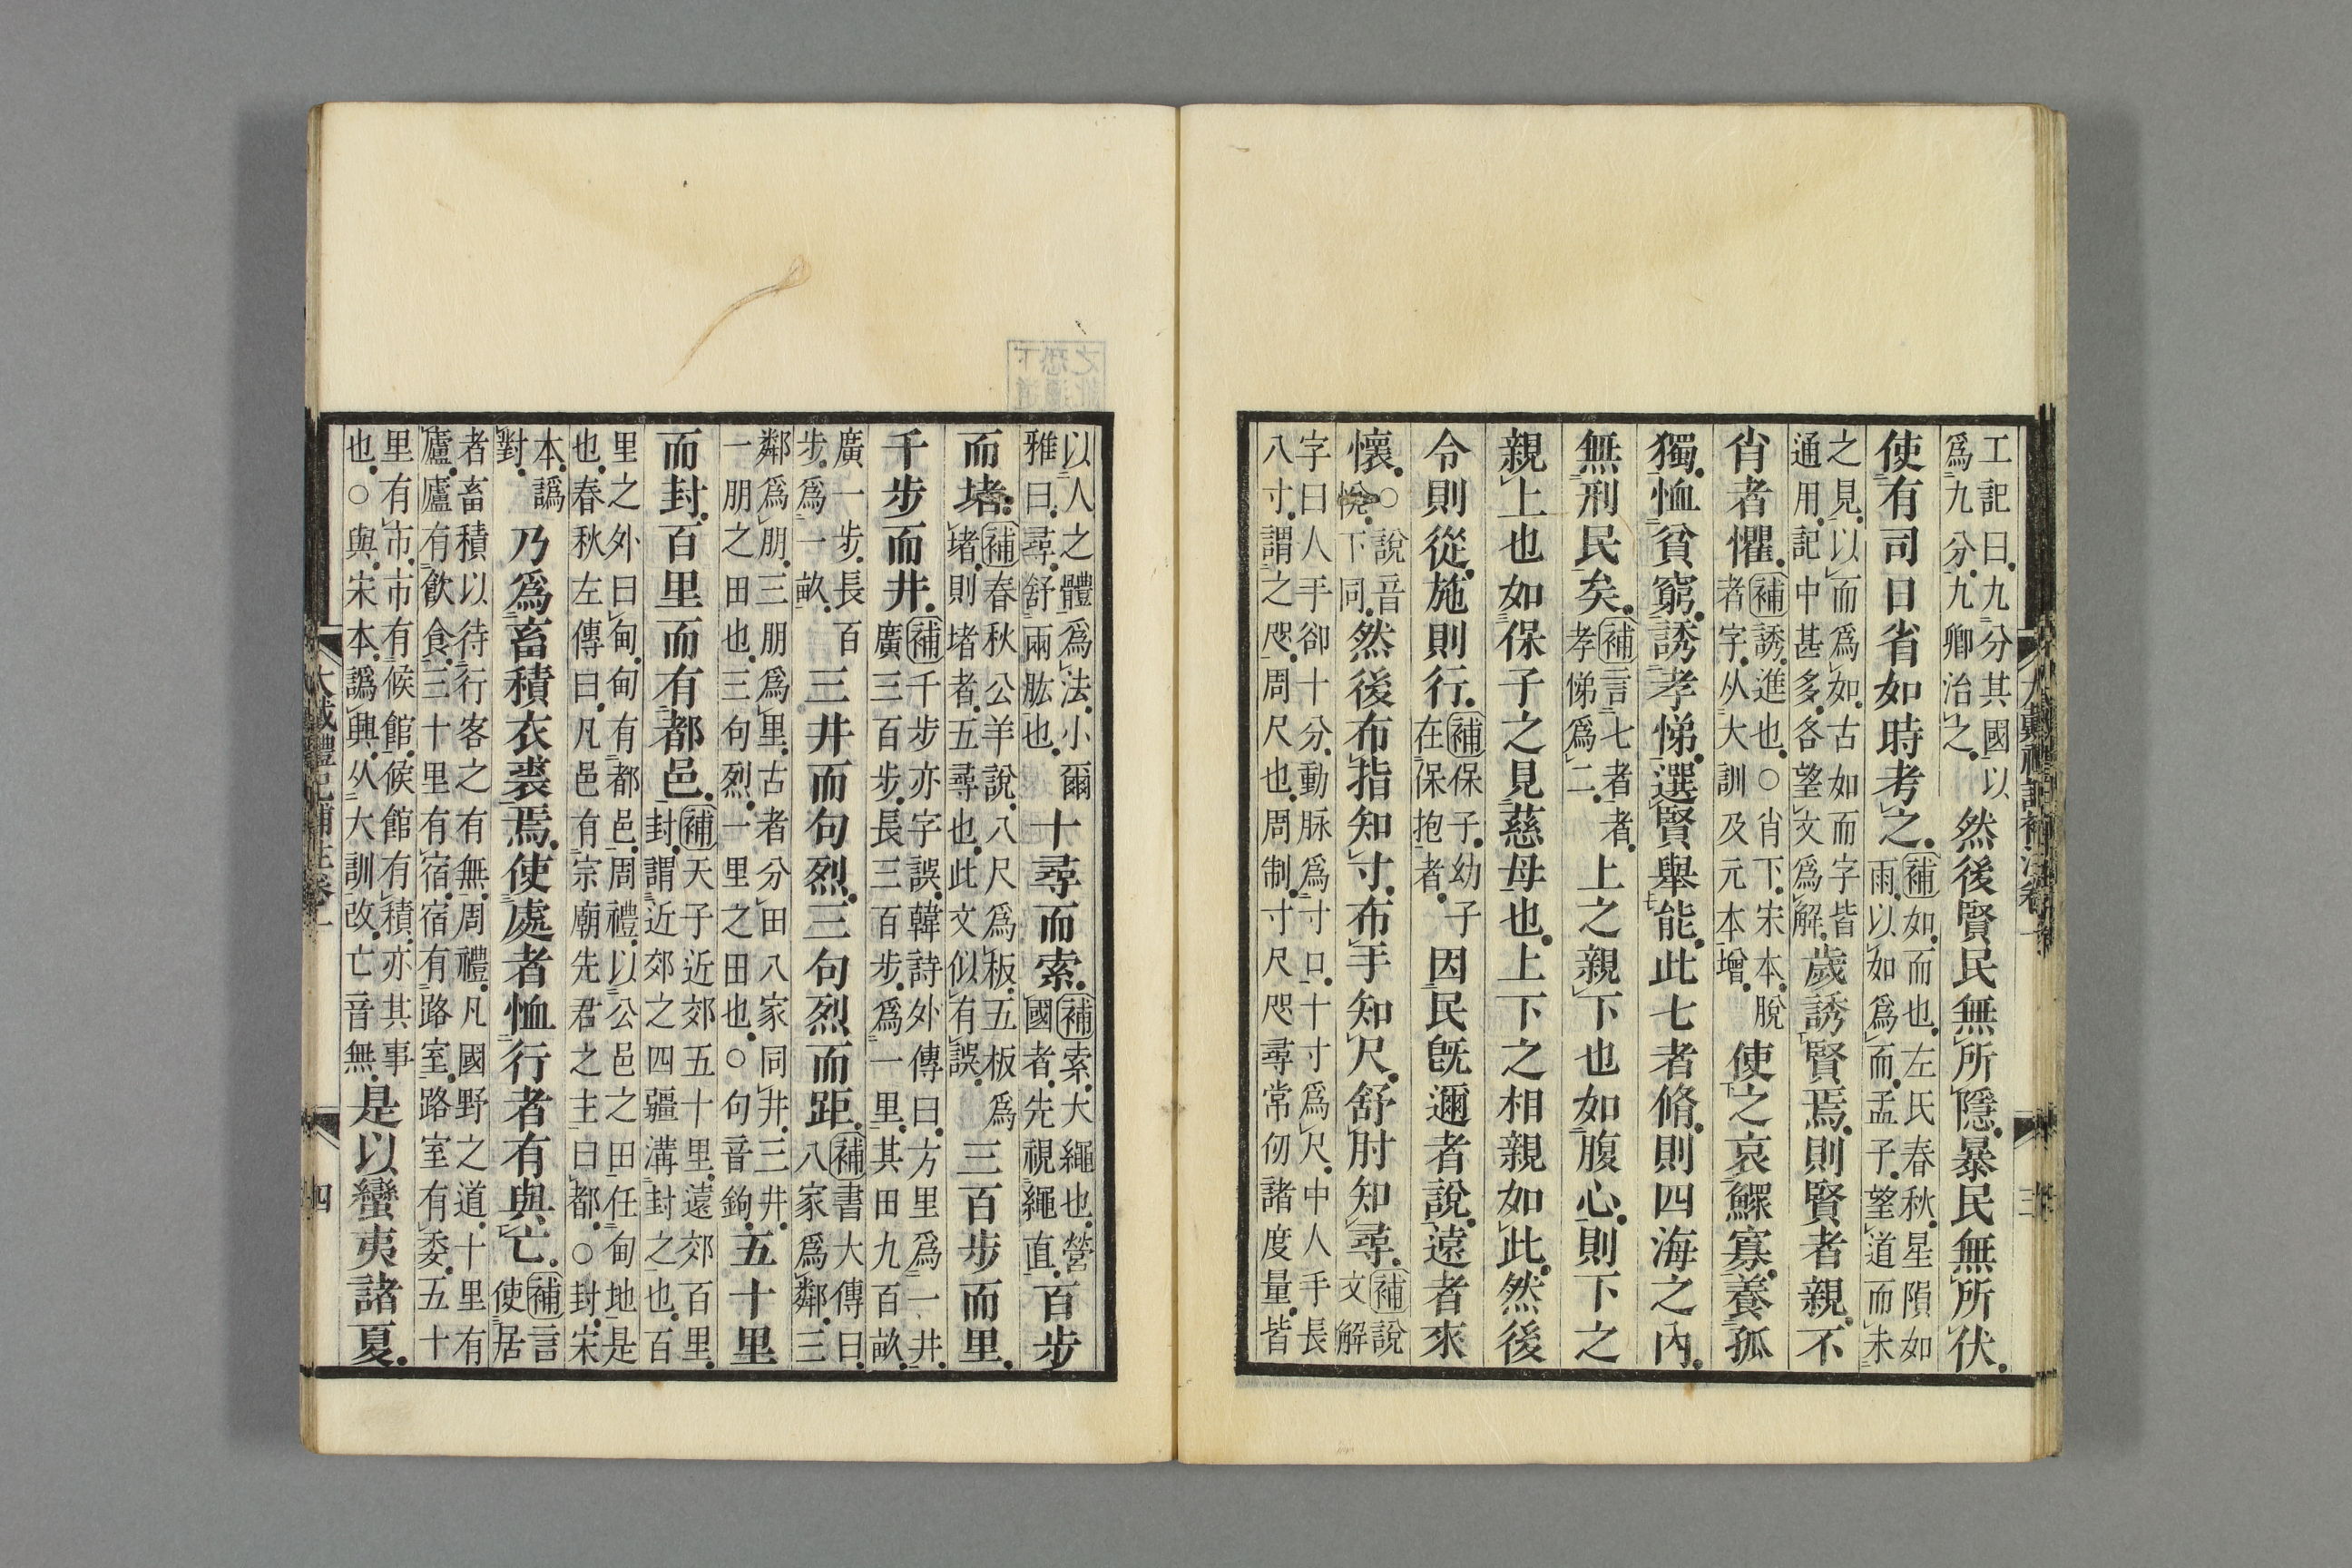 大戴禮記補注卷一 三
工記曰九分其國以爲九分九卿治之然後賢民無所隱暴民無所伏
使有司日省如時考之補如而也左氏春秋星隕如雨以如爲而孟子望道而未
之見以而爲如古如而字皆通用記中甚多各望文爲解歲誘賢焉則賢者親不
肖者懼補誘進也○肖下宋本脫者字从大訓及元本增使之哀鰥寡養孤
獨恤貧窮誘孝悌選賢舉能此七者脩則四海之內
無刑民矣補言七者者孝悌爲二上之親下也如腹心則下之
親上也如保子之見慈母也上下之相親如此然後
令則從施則行補保子幼子在保抱者因民旣邇者說遠者來
懷○說音悅下同然後布指知寸布手知尺舒肘知尋補說文解
字曰人手卻十分動脉爲寸口十寸爲尺中人手長八寸謂之咫周尺也周制寸尺咫尋常仞諸度量皆
以人之體爲法小爾雅曰尋舒兩肱也十尋而索補索大繩也營國者先視繩直百步
而堵補春秋公羊說八尺爲板五板爲堵則堵者五尋也此文似有誤三百步而里
千步而井補千步亦字誤韓詩外傳曰方里爲一井廣三百步長三百步爲一里其田九百畝
廣一步長百步爲一畝三井而句烈三句烈而距補書大傳曰八家爲鄰三
鄰爲朋三朋爲里古者分田八家同井三井一朋之田也三句烈一里之田也○句音鉤五十里
而封百里而有都邑補天子近郊五十里遠郊百里封謂近郊之四疆溝封之也百
里之外曰甸甸有都邑周禮以公邑之田任甸地是也春秋左傳曰凡邑有宗廟先君之主曰都○封宋
本譌對乃爲畜積衣裘焉使處者恤行者有與亡補言使居
者畜積以待行客之有無周禮凡國野之道十里有廬廬有飲食三十里有宿宿有路室路室有委五十
里有市市有候館候館有積亦其事也○與宋本譌興从大訓改亡音無是以蠻夷諸夏
大戴禮記補注卷一 四